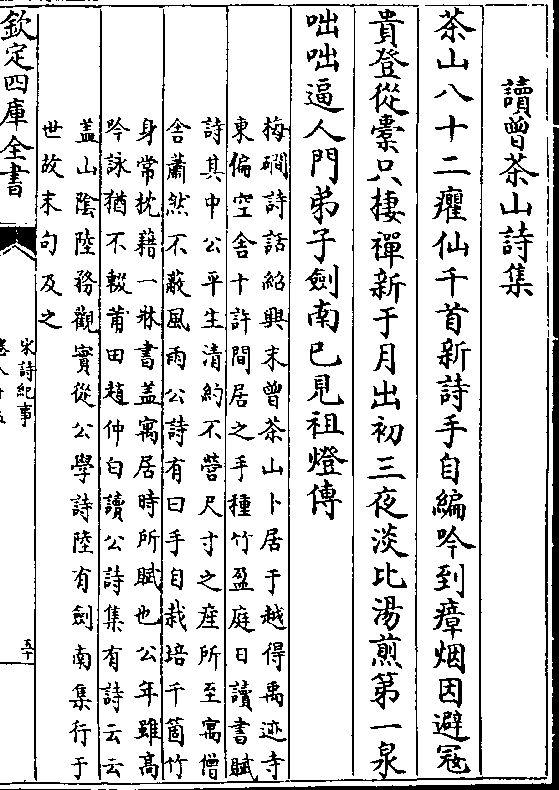 讀曾茶山詩集
茶山八十二癯仙千首新詩手自編吟到瘴烟因避冦
貴登從槖只捿禪新于月出初三夜淡比湯煎第一泉
咄咄逼人門弟子劍南已見祖燈傳
梅磵詩話紹興末曾茶山卜居于越得禹迹寺
東偏空舎十許間居之手種竹盈庭日讀書賦
詩其中公平生清約不營尺寸之産所至寓僧
舎蕭然不蔽風雨公詩有曰手自栽培千箇竹
身常枕藉一牀書盖寓居時所賦也公年雖高
吟詠猶不輟莆田趙仲白讀公詩集有詩云云
盖山隂陸務觀實從公學詩陸有劍南集行于
世故末句及之
欽定四庫全書
宋詩紀事
卷八十五
五十